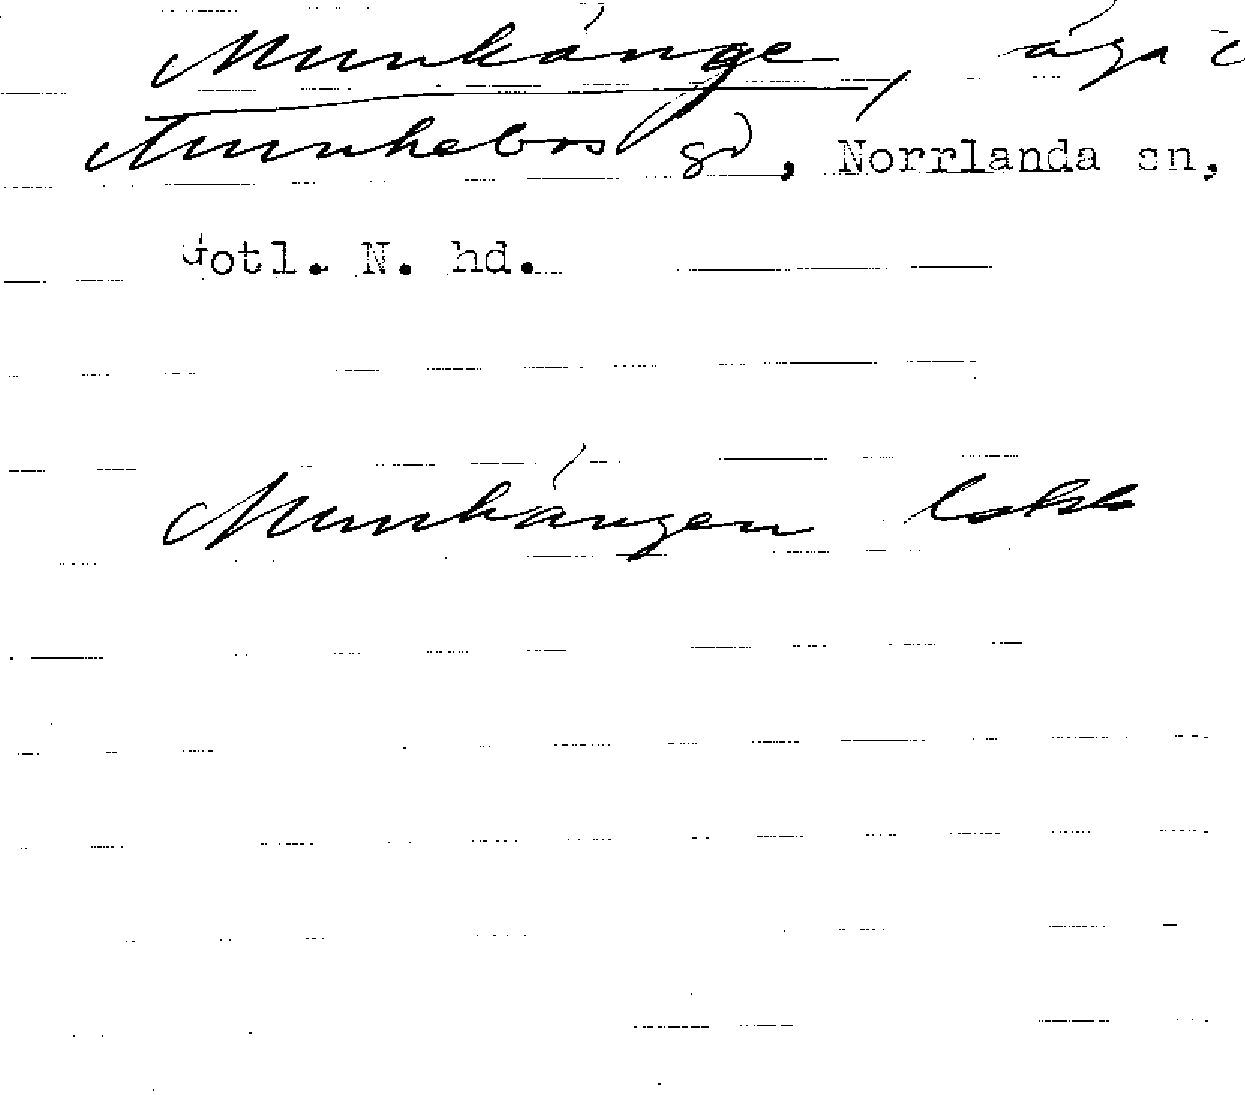 Munkänge, äga i
Munkebos gd, Norrlanda sn,
Gotl. N. hd.
Munkängen